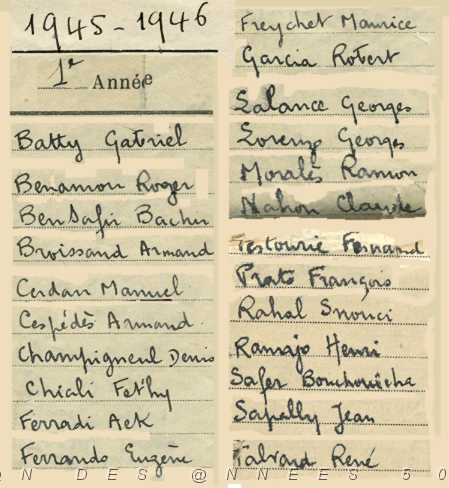 1945-1946
1e Année
Batty Gabriel
Benamou Roger
BenSafir Bachir
Broissand Armand
Cerdan Manuel
Cespédès Armand
Champigneul Denis
Chiali Fethy
Ferradi Aek
Ferrando Eugène
Freychet Maurice
Garcia Robert
Lalance Georges
Lorenzo Georges
Moralès Ramon
Nahon Claude
Testouric Fernand
Prats François
Rahal Snouci
Ramajo Henri
Safer Bouchouicha
Sapally Jean
Talvard René
DES @NNEES 50